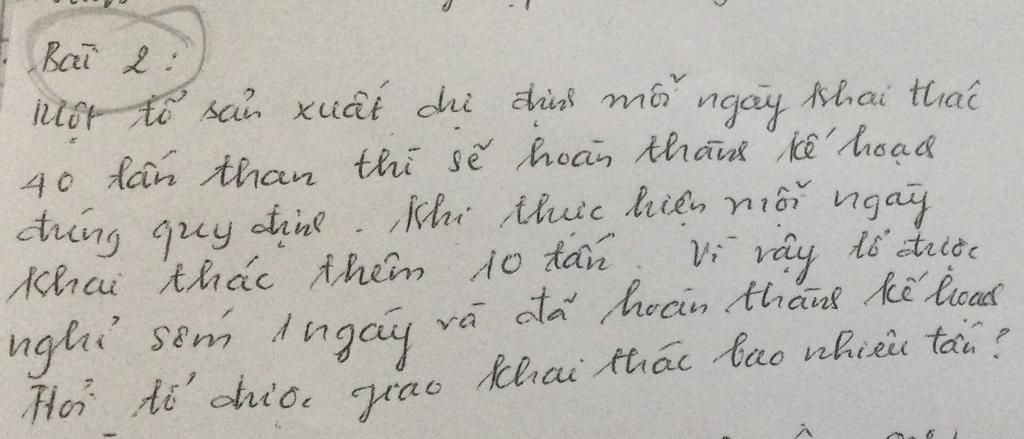 Bài 2:
Một tổ sản xuất dự định mỗi ngày khai thác
40 tấn than thì sẽ hoàn thành kế hoạch
đúng quy định. Khi thực hiện mỗi ngày
khai thác thêm 10 tấn. Vì vậy tổ được
nghỉ sớm 1 ngày và đã hoàn thành kế hoạch
Hỏi tổ được giao khai thác bao nhiêu tấn?